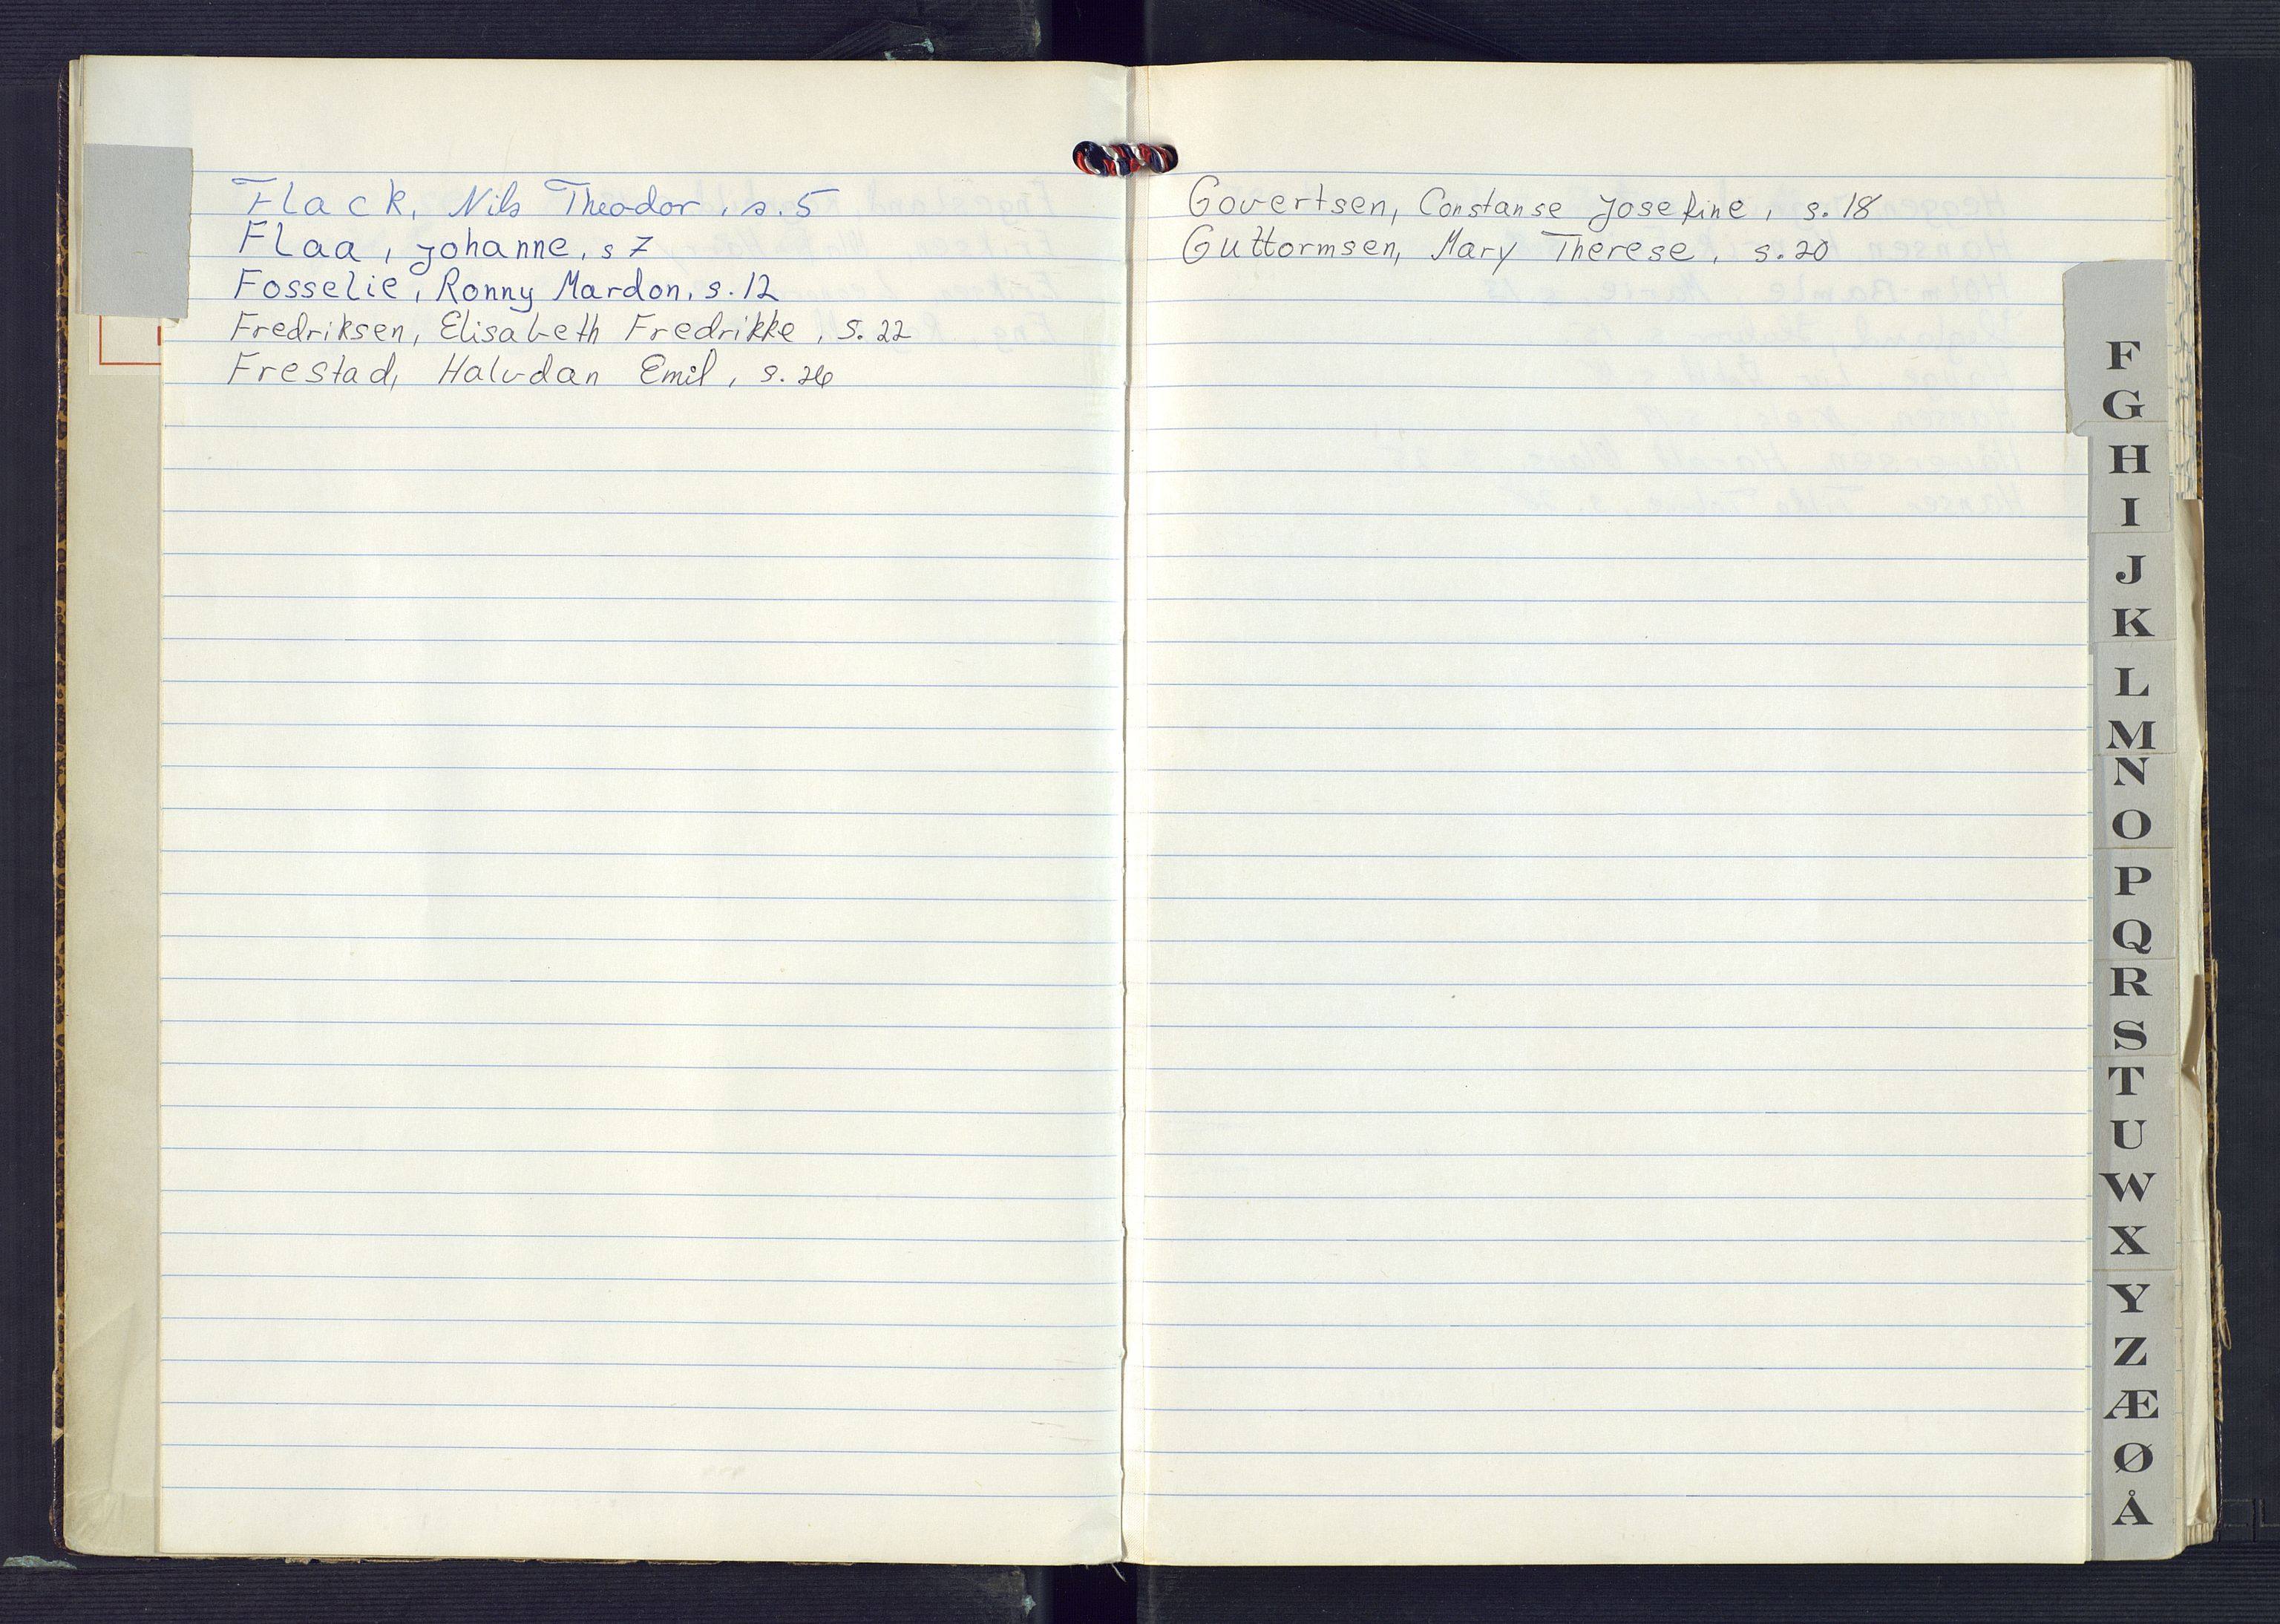 Flack, Nils Theodor, s. 5
Flaa, Johanne, s 7
Fosselie, Ronny Mardon, s. 12
Fredriksen, Elisabeth Fredrikke, s. 22
Frestad, Halvdan Emil, s. 26
Govertsen, Constanse Josefine, s. 18
Guttormsen, Mary Therese, s. 20
F
G
H
I
J
K
L
M
N
O
P
Q
R
S
T
U
W
X
Y
Z
Æ
Ø
Å